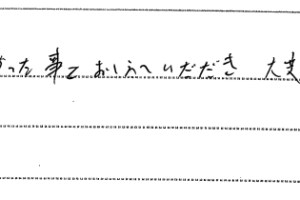 った事をおしえていただき 大変